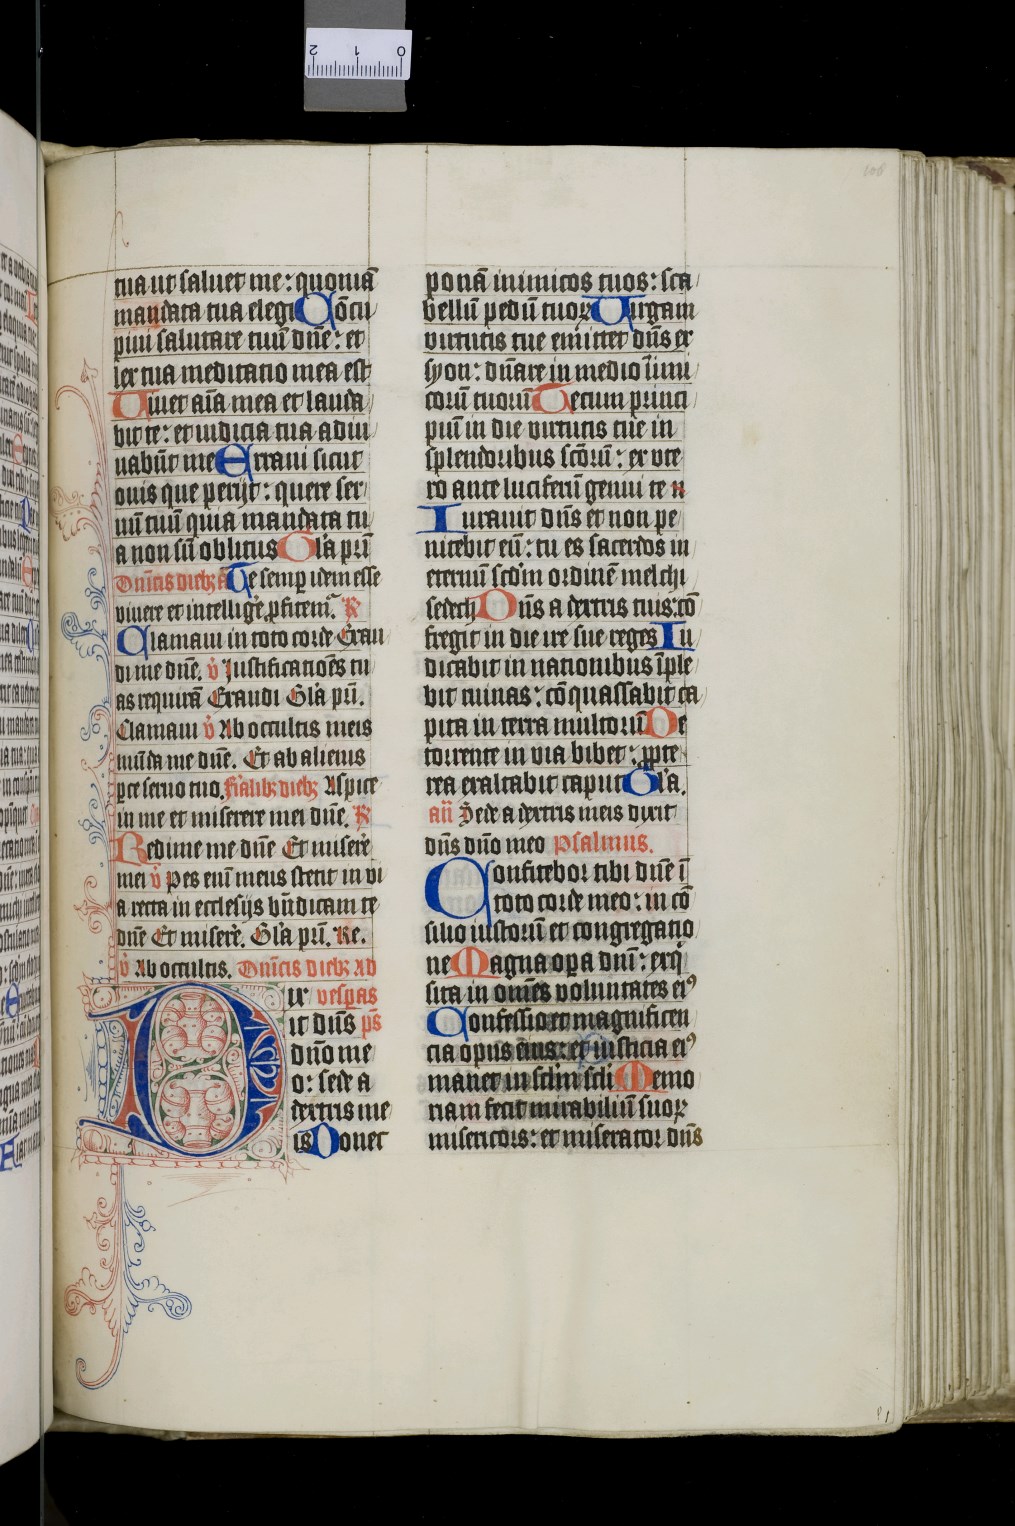 tua ut saluet me: quoniā
mandata tua elegi Cōcu
piui salutare tuū dn̄e: et
lex tua meditatio mea est
Uiuet aīa mea et lauda
bit te: et iudicia tua adiu
uabūt me Erraui sicut
ouis que perijt: quere ser
uū tuū quia mandata tu
a non sū oblitus Gl'a pr̄i
Dn̄icis diebꝫ a Te semꝑ idem esse
viuere et intellige' ꝓfitem R̄
Clamaui in toto corde Exau
di me dn̄e. v̄ Justificatiōes tu
as requirā Exaudi Gl'a pr̄i.
Clamaui v̄ Ab occultis meis
mūda me dn̄e. Et ab alienis
ꝑce seruo tuo. fr̄ialibꝫ diebꝫ Aspice
in me et miserere mei dn̄e. R̄
Redime me dn̄e Et misere'
mei v̄ Pes eni meus stetit in vi
a recta in ecclesijs bn̄dicam te
dn̄e Et misere'. Gl'a pr̄i. Re.
v̄ Ab occultis. Dn̄icis diebꝫ ad
Dix vesꝑas
it dn̄s ps̄
dn̄o me
o: sede a
dextris me
is Donec
ponā inimicos tuos: sca
bellū pedū tuoꝝ Uirgam
virtutis tue emittet dn̄s ex
syon: dn̄are in medio īimi
corū tuorū Tecum princi
piū in die virtutis tue in
splendoribus sc̄orū: ex vte
ro ante luciferū genui te
Iurauit dn̄s et non pe
nitebit eū: tu es sacerdos in
eternū sc̄dm ordinē melchi
sedech Dn̄s a dextris tuis: cō
fregit in die ire sue reges Iu
dicabit in nationibus īple
bit ruinas: cōquassabit ca
pita in terra multorū De
torrente in via bibet: ꝓpte
rea exaltabit caput Gl'a.
an̄ Sede a dextris meis dixit
dn̄s dn̄o meo Psalmus.
Confitebor tibi dn̄e ī
toto corde meo: in cō
silio iustorū et congregatio
ne Magna oꝑa dn̄i: exq̄
sita in omēs voluntates eiꝰ
Confessio et magnificen
cia opus eius: et iusticia eiꝰ
manet in sc̄lm sc̄li Memo
riam fecit mirabiliū suoꝝ
misericors: et miserator dn̄s